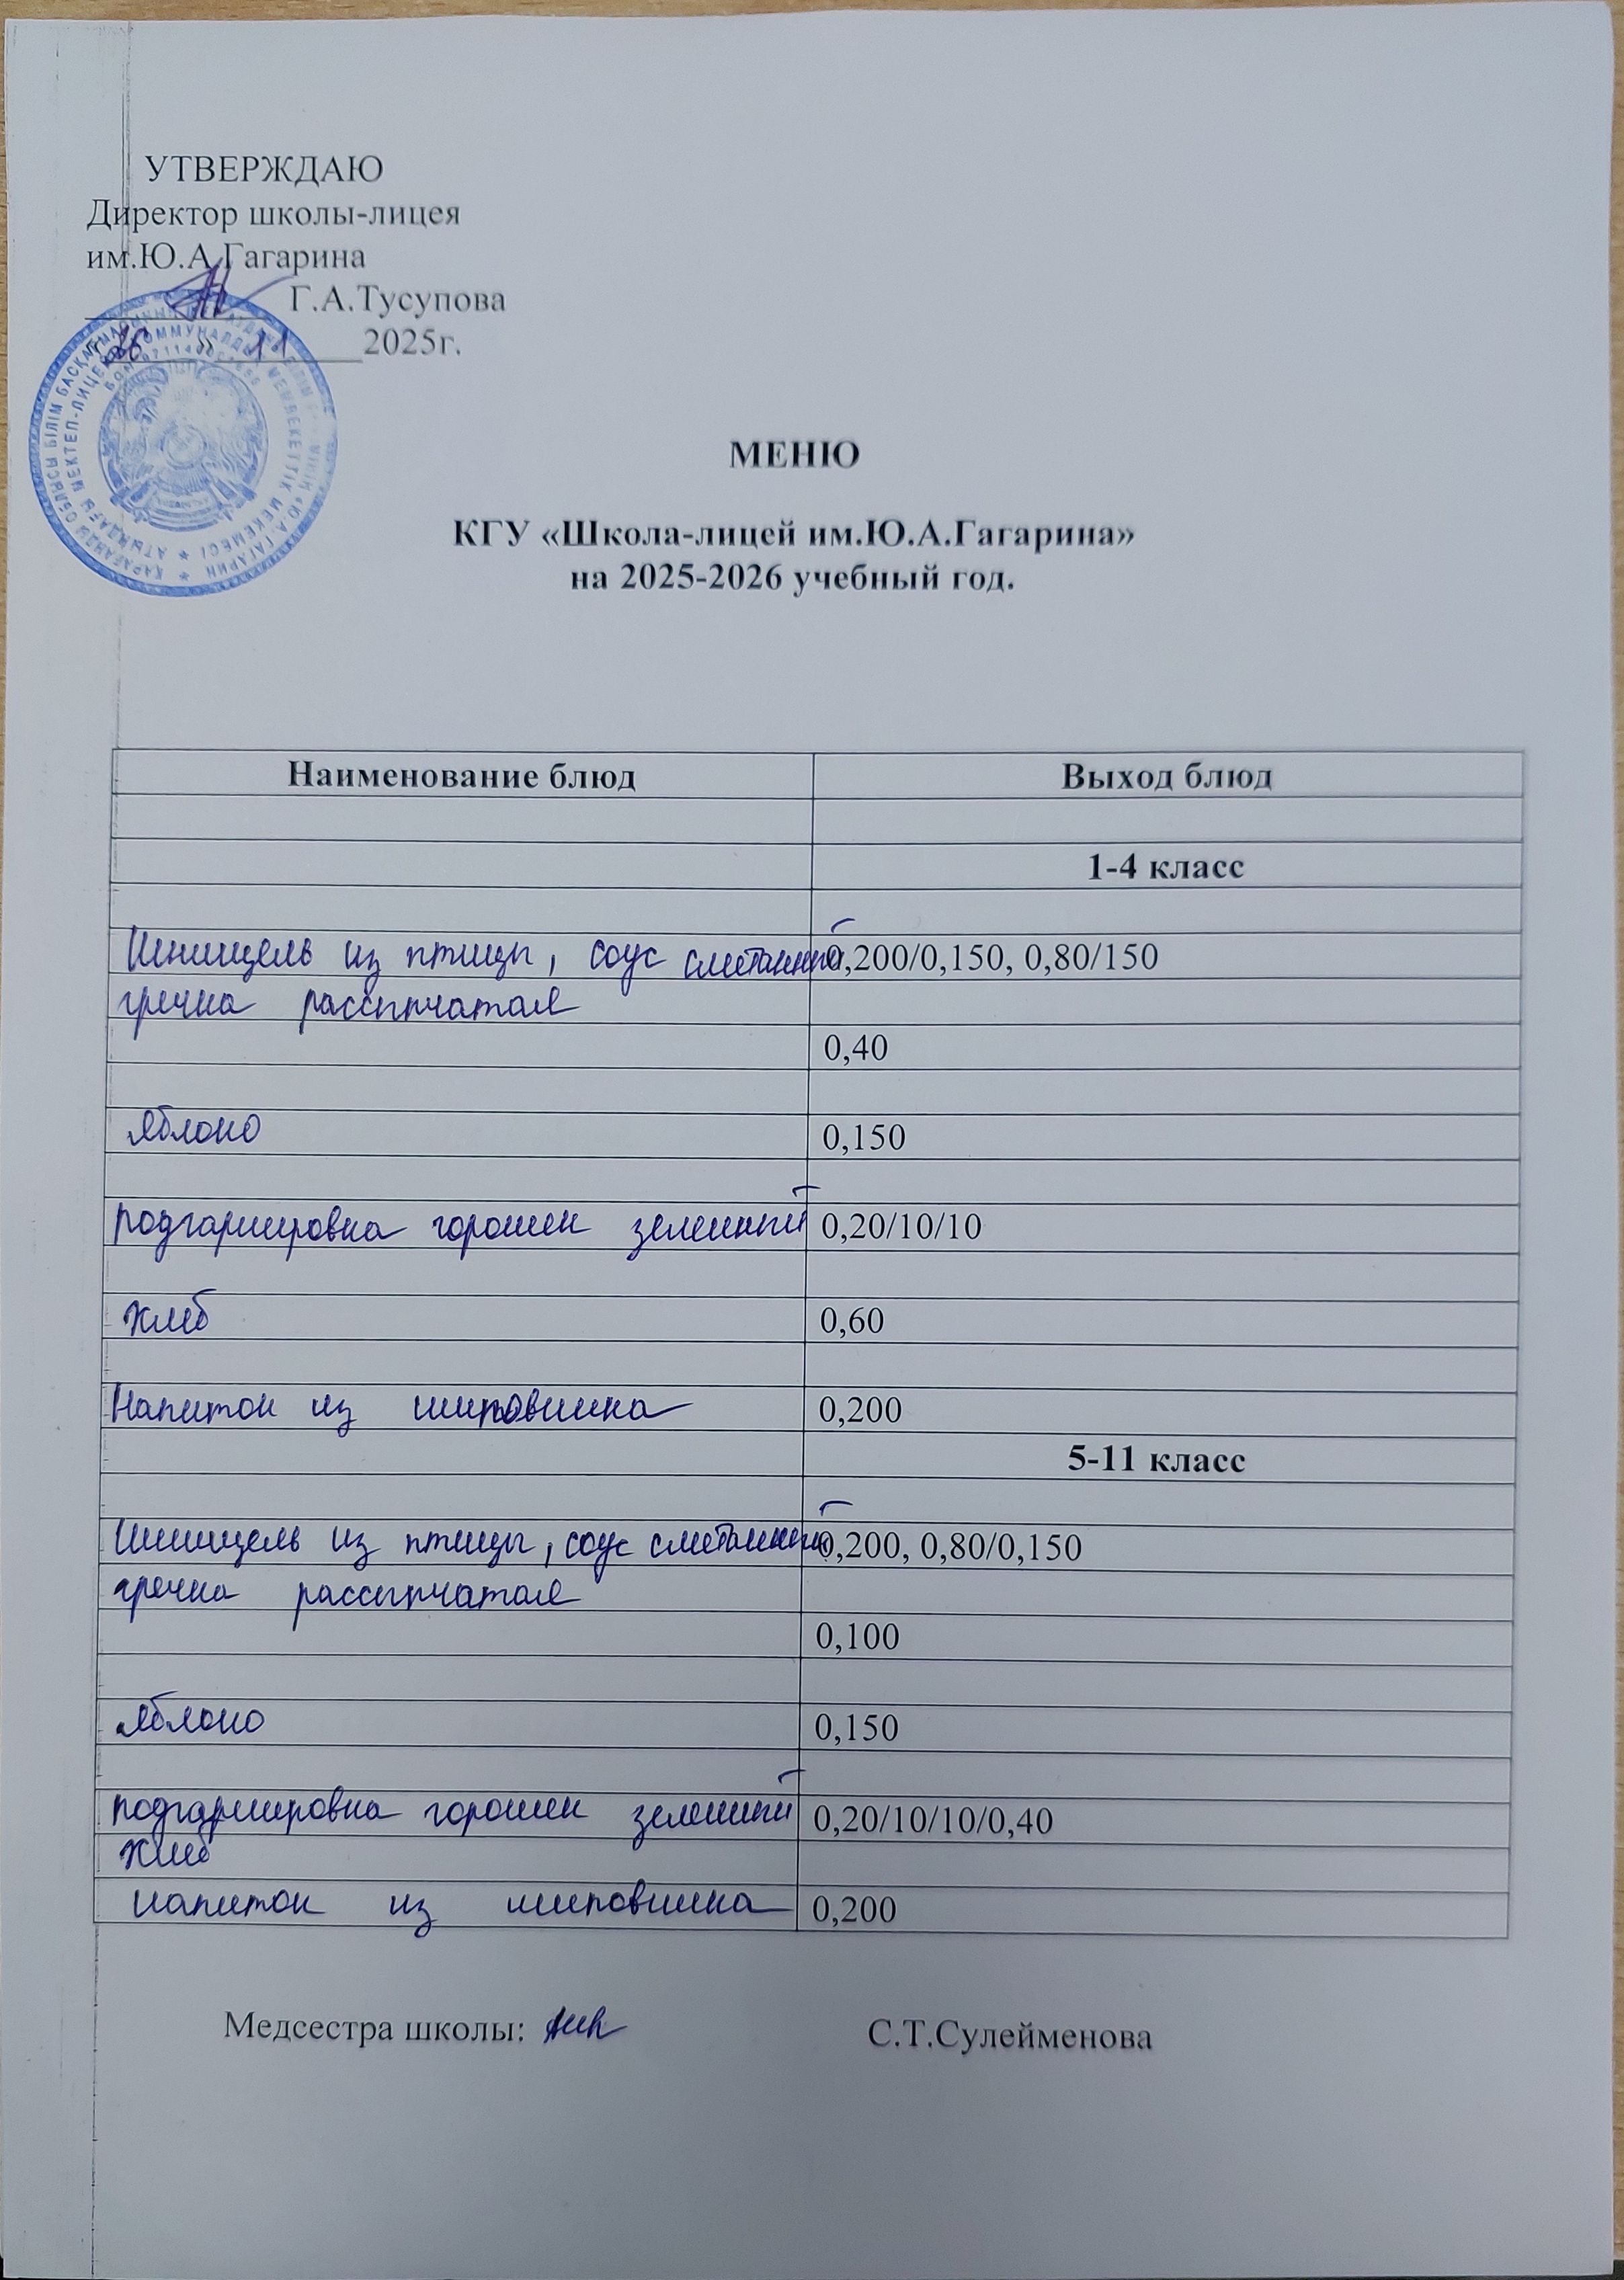 УТВЕРЖДАЮ
Директор школы-лицея
им.Ю.А.Гагарина
Г.А.Тусупова
«26» 11 2025г.
МЕНЮ
КГУ «Школа-лицей им.Ю.А.Гагарина»
на 2025-2026 учебный год.
Наименование блюд Выход блюд
1-4 класс
Шницель из птицы, соус сметанный 0,200/0,150, 0,80/150
гречка рассыпчатая
0,40
яблоко 0,150
подгарнировка горошек зеленый 0,20/10/10
хлеб 0,60
Напиток из шиповника 0,200
5-11 класс
Шницель из птицы, соус сметанный 0,200, 0,80/0,150
гречка рассыпчатая
0,100
яблоко 0,150
подгарнировка горошек зеленый 0,20/10/10/0,40
хлеб
напиток из шиповника 0,200
Медсестра школы: С.Т.Сулейменова